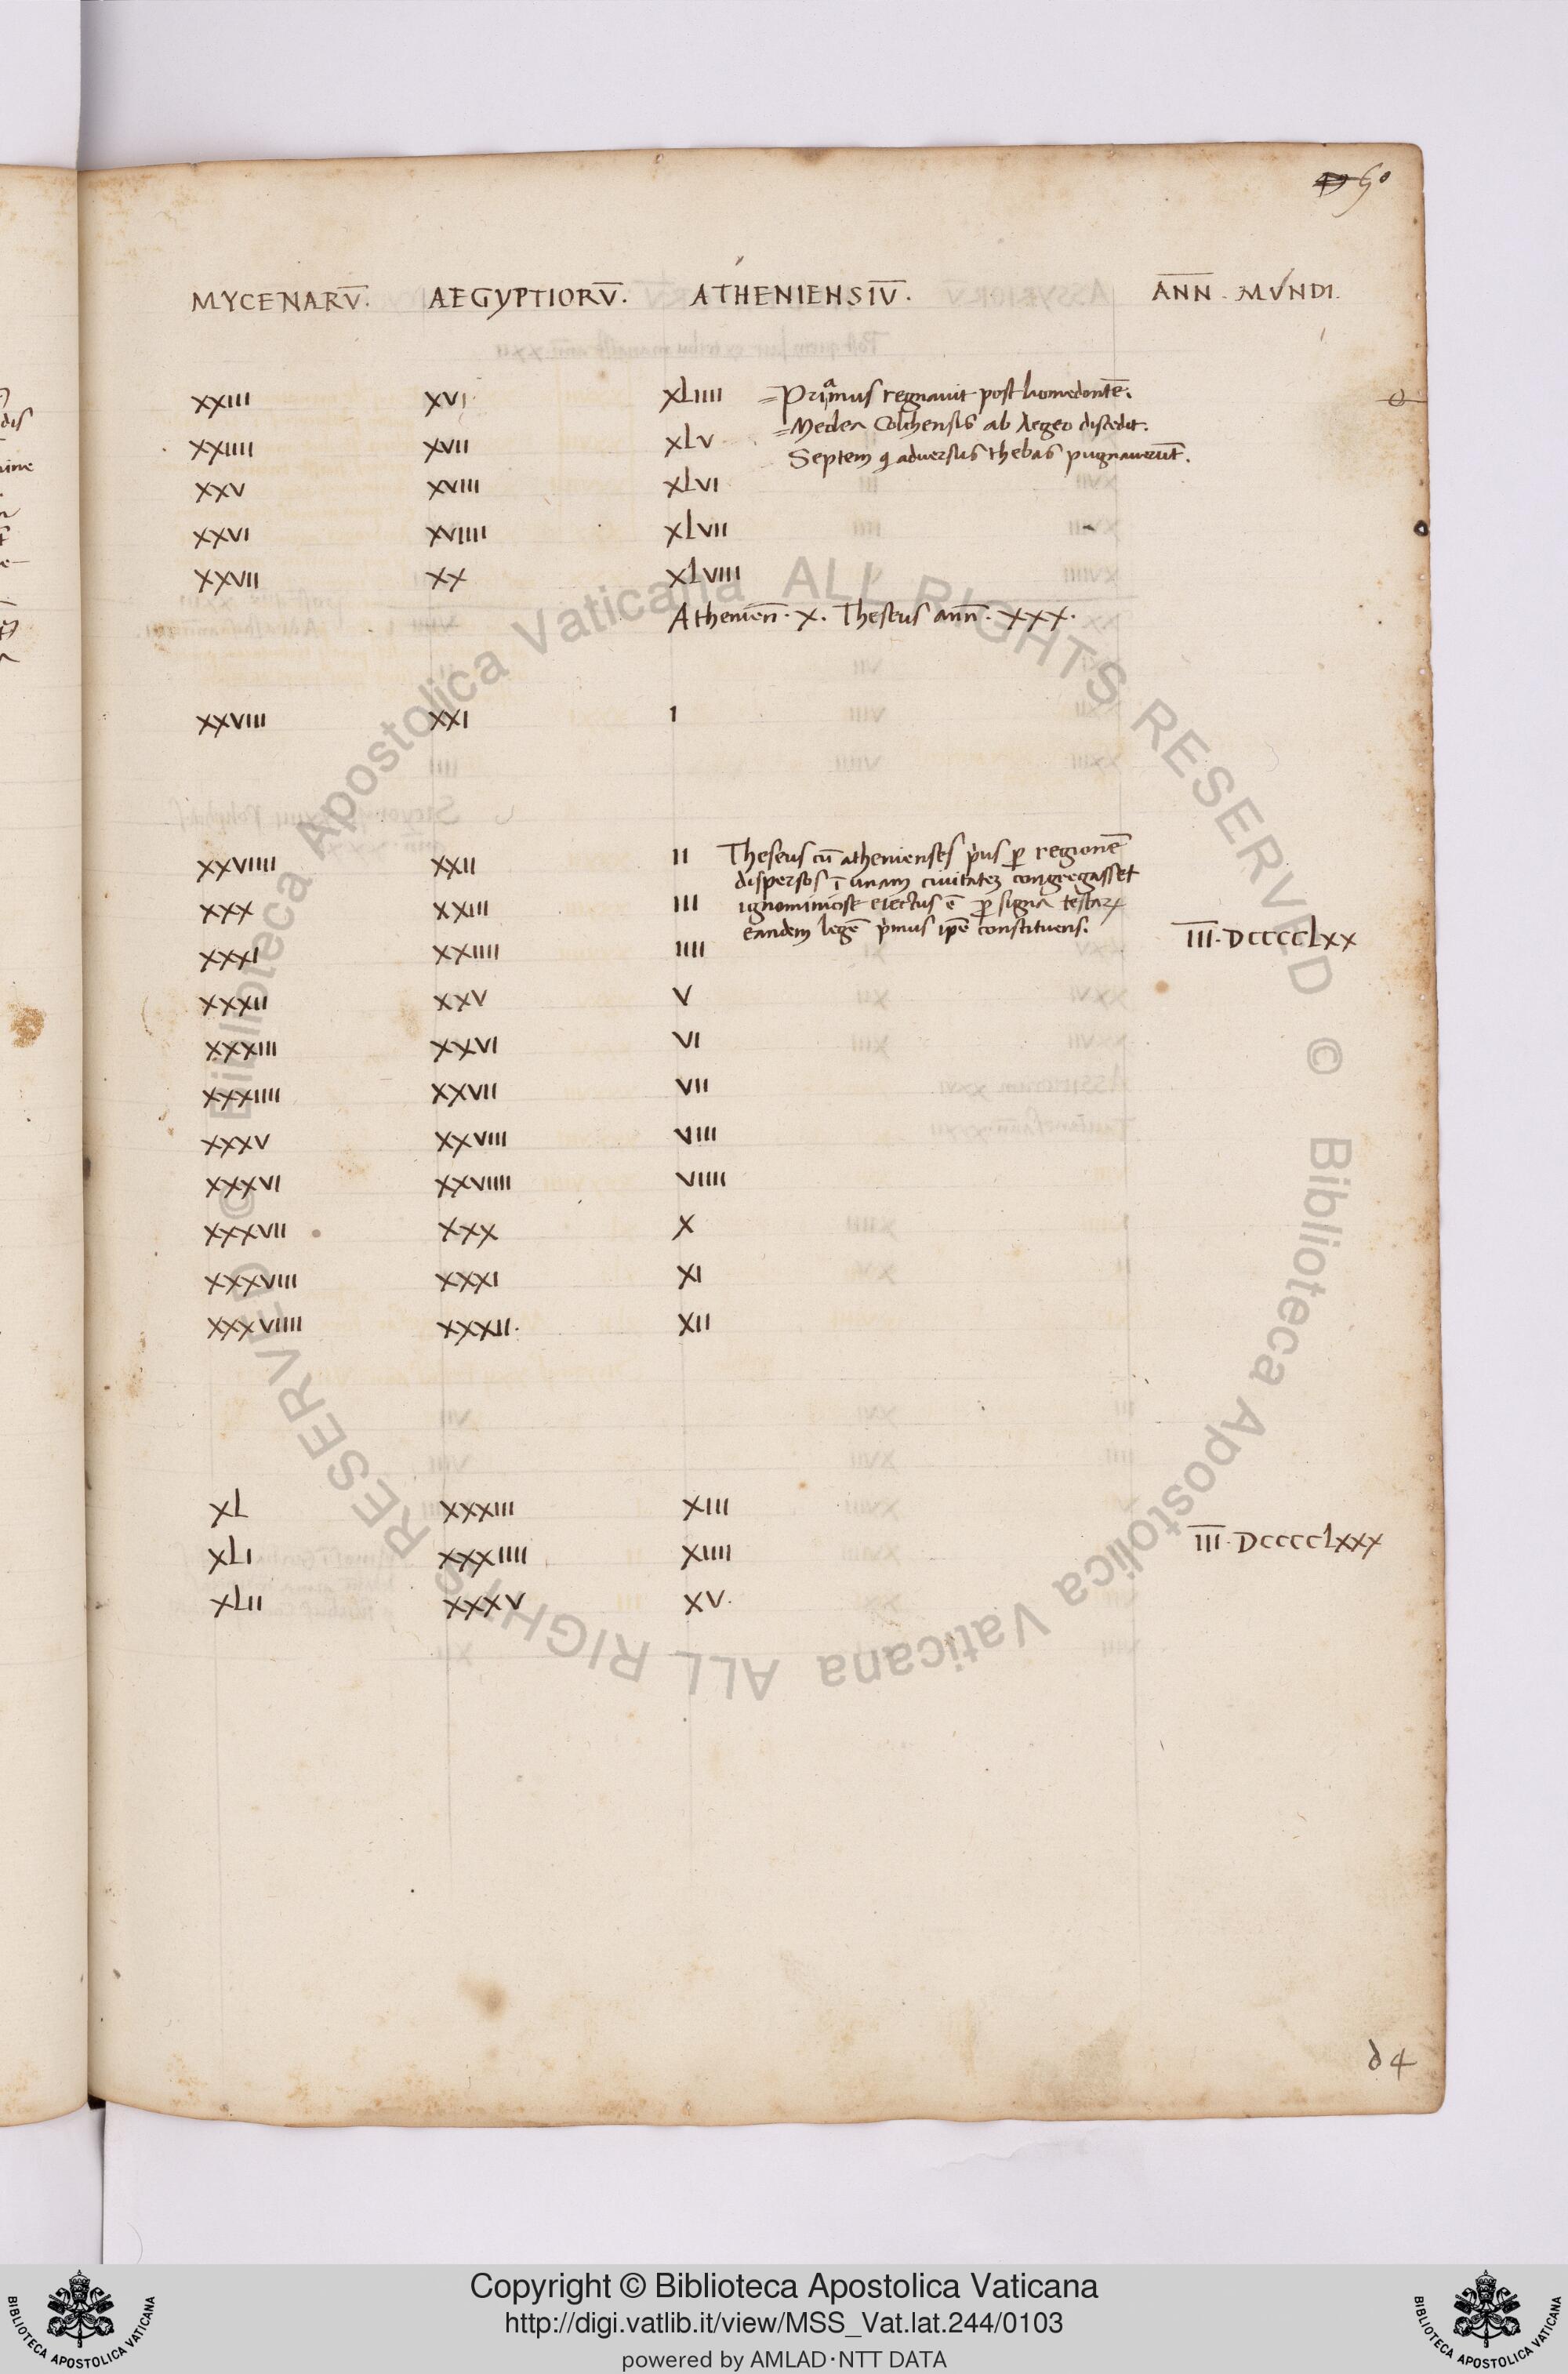 50
MYCENARV̅. AEGYPTIORV̅. ATHENIENSIV̅. A̅N̅N̅. MVNDI.
XXIII XVI XLIIII =Priamus regnavit post laomedontē.
=Medea Colchensis ab Aegeo discedit.
XXIIII XVII XLV
Septem q adversus thebas pugnaverūt.
XXV XVIII XLVI
XXVI XVIIII XLVII
XXVII XX XLVIII
Athenien̄. X. Theseus ann̄. XXX.
XXVIII XXI I
XXVIIII XXII II Theseus cū athenienses p̓us ꝑ regionē
dispersos ī unam civitatem congregasset
XXX XXIII III ignominiose eiectus ē ꝑ signa testaꝝ
eandem legē p̓mus ip̄e constituens.
XXXI XXIIII IIII I̅I̅I̅. DCCCCLXX
XXXII XXV V
XXXIII XXVI VI
XXXIIII XXVII VII
XXXV XXVIII VIII
XXXVI XXVIIII VIIII
XXXVII XXX X
XXXVIII XXXI XI
XXXVIIII XXXII. XII
XL XXXIII XIII
XLI XXXIIII XIIII I̅I̅I̅. DCCCCLXXX
XLII XXXV XV.
d4
© Biblioteca Apostolica Vaticana ALL RIGHTS RESERVED © Biblioteca Apostolica Vaticana ALL RIGHTS RESERVED
Copyright © Biblioteca Apostolica Vaticana
http://digi.vatlib.it/view/MSS_Vat.lat.244/0103
powered by AMLAD·NTT DATA
BIBLIOTECA APOSTOLICA VATICANA
BIBLIOTECA APOSTOLICA VATICANA